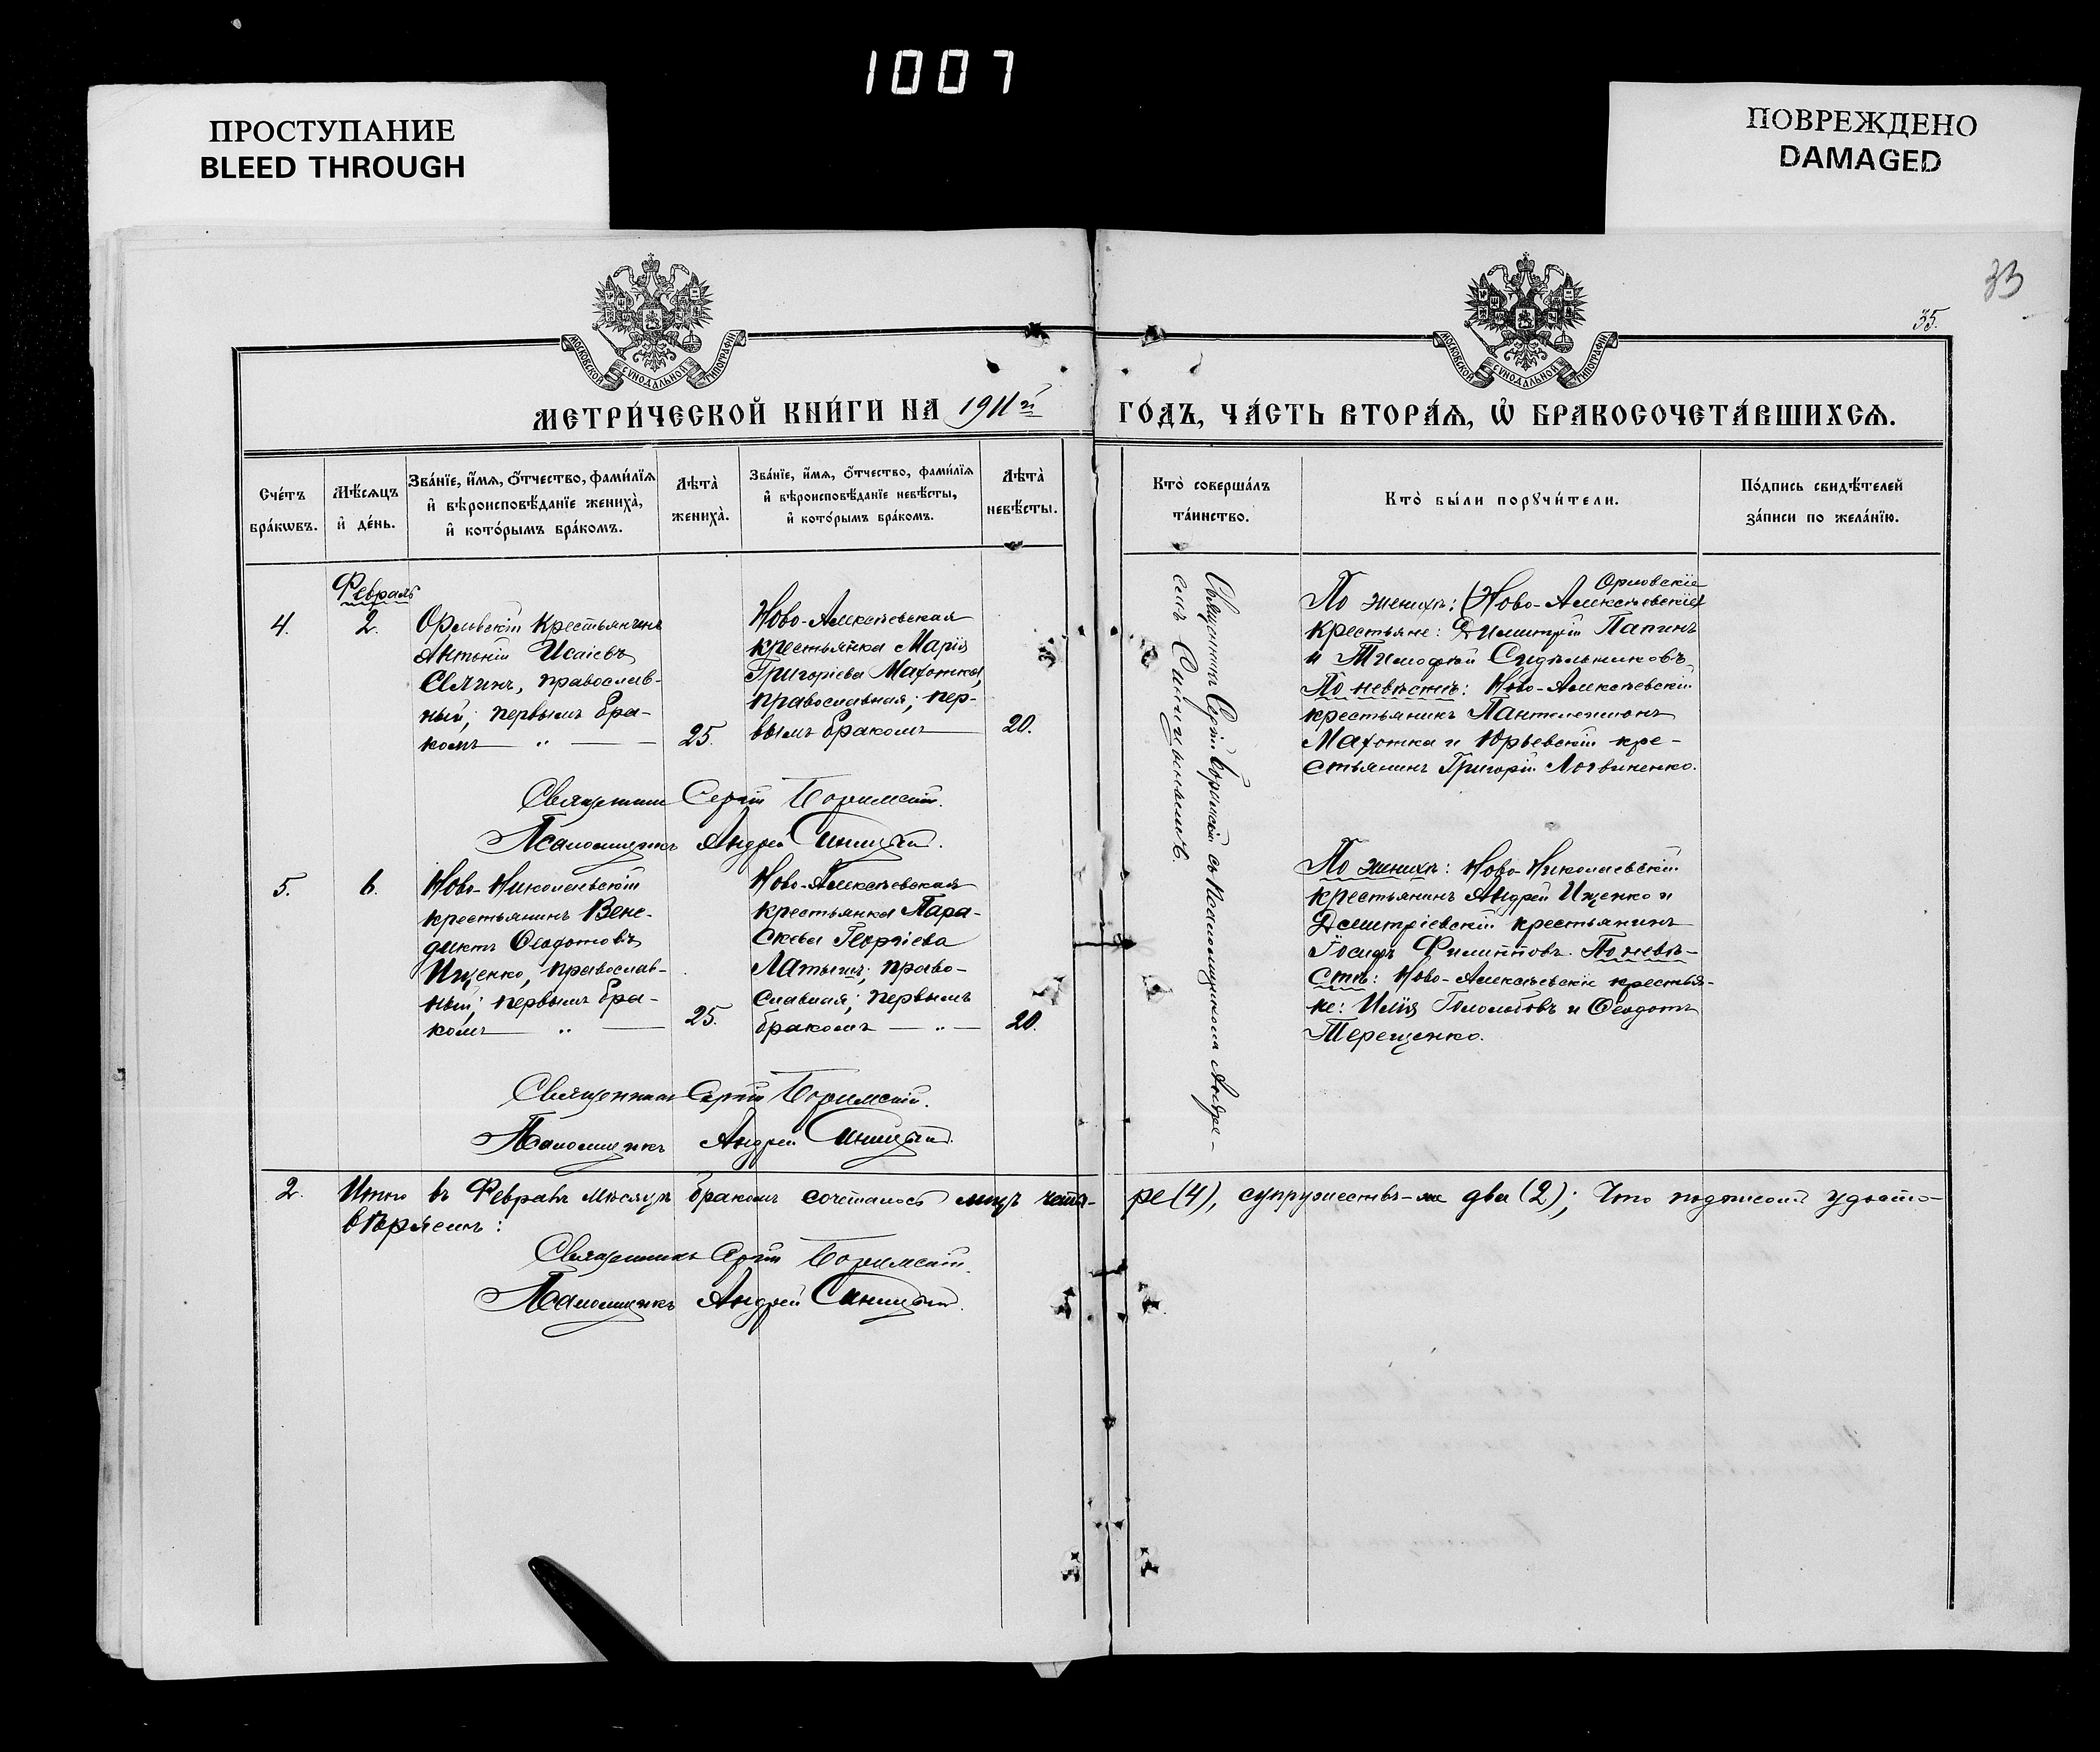 1007
ПРОСТУПАНИЕ
BLEED THROUGH
ПОВРЕЖДЕНО
DAMAGED
33
35.
МОСКОВСКОЙ СѴНОДАЛЬНОЙ ТИПОГРАФІИ
МОСКОВСКОЙ СѴНОДАЛЬНОЙ ТИПОГРАФІИ
МЕТРИ́ЧЕСКОЙ КНИ́ГИ НА 1911й
ГО́ДЪ, ЧА́СТЬ ВТОРА́Ѧ, Ѽ БРАКОСОЧЕТА́ВШИХСѦ.
Сче́тъ
бра́кѡвъ.
Мѣ́сѧцъ
и҆ де́нь.
Зва́нїе, и҆́мѧ, ѻ҆́тчество, фами́лїѧ
и҆ вѣроисповѣ́данїе жениха̀,
и҆ кото́рымъ бра́комъ.
Лѣта̀
жениха̀.
Зва́нїе, и҆́мѧ, ѻ҆́тчество, фами́лїѧ
и҆ вѣроисповѣ́данїе невѣ́сты,
и҆ кото́рымъ бра́комъ.
Лѣта̀
невѣ́сты.
Кто̀ соверша́лъ
та́инство.
Кто̀ бы́ли порꙋчи́тели.
По́дпись свидѣ́телей
за́писи по жела́нїю.
Февраль
4.
2.
Орловскій Крестьянинъ
Антоній Исаіевъ
Сѣлинъ, православ-
ный; первымъ бра-
комъ — „ —
25.
Ново-Алексѣевская
крестьянка Марія
Григоріева Махотка,
православная; пер-
вымъ бракомъ —
20.
Священникъ Сергій Боримскій съ Псаломщикомъ Андре-
емъ Синицынымъ.
Орловскіе
По женихѣ: (Ново-Алексѣевскіе)
крестьяне: Димитрій Папинъ
и Тимофей Сидѣльниковъ
По невѣстѣ: Ново-Алексѣевскій
крестьянинъ Пантелеимонъ
Махотка и Юрьевскій кре-
стьянинъ Григорій Логвиненко.
Священникъ Сергій Боримскій.
Псаломщикъ Андрей Синицынъ.
5.
6.
Ново-Николаевскій
крестьянинъ Вене-
диктъ Ѳеодотовъ
Ищенко, православ-
ный; первымъ бра-
комъ — „ —
25.
Ново-Алексѣевская
крестьянка Пара-
скева Георгіева
Латышъ; право-
славная; первымъ
бракомъ — „ —
20.
По женихѣ: Ново-Николаевскій
крестьянинъ Андрей Ищенко и
Дмитріевскій крестьянинъ
Іосифъ Филипповъ. По невѣ-
стѣ: Ново-Алексѣевскіе крестья-
не: Илія и Ѳеодотъ
Терещенко.
Священникъ Сергій Боримскій.
Псаломщикъ Андрей Синицынъ.
2.
Итого въ Февралѣ мѣсяцѣ бракомъ сочеталось лицъ четы-
ре (4), супружествъ-же два (2); Что подписомъ удосто-
вѣряемъ:
Священникъ Сергій Боримскій.
Псаломщикъ Андрей Синицынъ.